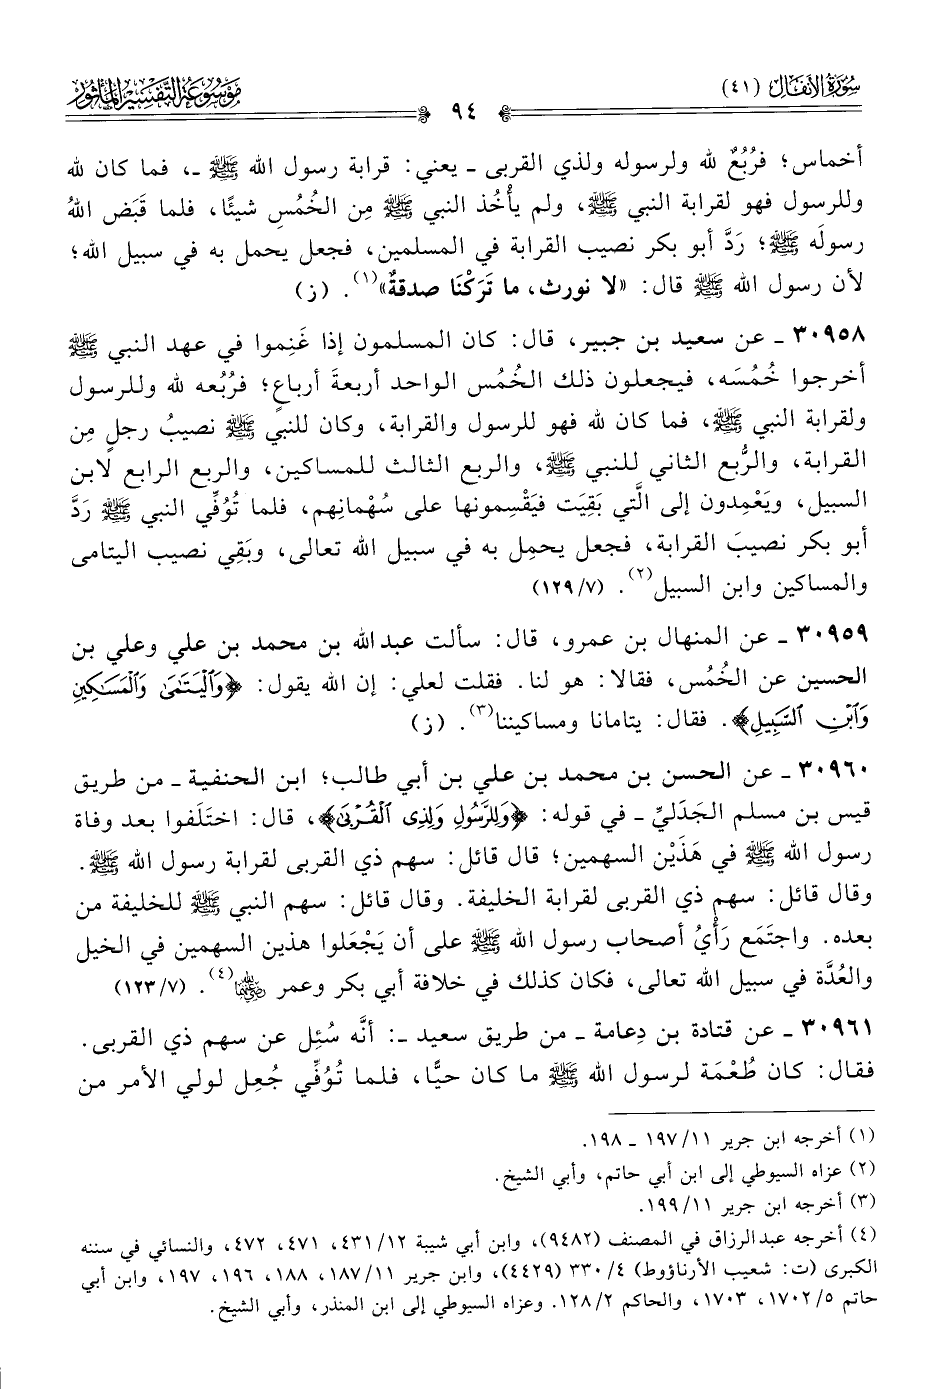 سُورَةُ الأَنفَال (٤١)
٩٤
مَوْسُوعَةُ التَّفْسِيرِ المَأْثُورِ
أخماس؛ فرُبُعٌ لله ولرسوله ولذي القربى ـ يعني: قرابة رسول الله ﷺ ـ، فما كان لله
وللرسول فهو لقرابة النبي ﷺ، ولم يأْخُذ النبي ﷺ مِن الخُمُسِ شيئًا، فلما قَبَض اللهُ
رسولَه ﷺ؛ رَدَّ أبو بكر نصيب القرابة في المسلمين، فجعل يحمل به في سبيل الله؛
لأن رسول الله ﷺ قال: «لا نورث، ما تَرَكْنَا صدقةٌ»(١). (ز)
٣٠٩٥٨ ـ عن سعيد بن جبير، قال: كان المسلمون إذا غَنِموا في عهد النبي ﷺ
أخرجوا خُمُسَه، فيجعلون ذلك الخُمُس الواحد أربعةَ أرباعٍ؛ فرُبُعه لله وللرسول
ولقرابة النبي ﷺ، فما كان لله فهو للرسول والقرابة، وكان للنبي ﷺ نصيبُ رجلٍ مِن
القرابة، والرُّبع الثاني للنبي ﷺ، والربع الثالث للمساكين، والربع الرابع لابن
السبيل، ويَعْمِدون إلى الَّتي بَقِيَت فيَقْسِمونها على سُهْمانِهم، فلما تُوُفِّي النبي ﷺ رَدَّ
أبو بكر نصيبَ القرابة، فجعل يحمِل به في سبيل الله تعالى، وبَقِي نصيب اليتامى
والمساكين وابن السبيل(٢). (٧/ ١٢٩)
٣٠٩٥٩ ـ عن المنهال بن عمرو، قال: سألت عبدالله بن محمد بن علي وعلي بن
الحسين عن الخُمُس، فقالا: هو لنا. فقلت لعلي: إن الله يقول: ﴿وَٱلْيَتَٰمَىٰ وَٱلْمَسَٰكِينِ
وَٱبْنِ ٱلسَّبِيلِ﴾. فقال: يتامانا ومساكيننا(٣). (ز)
٣٠٩٦٠ ـ عن الحسن بن محمد بن علي بن أبي طالب؛ ابن الحنفية ـ من طريق
قيس بن مسلم الجَدَليِّ ـ في قوله: ﴿وَلِلرَّسُولِ وَلِذِى ٱلْقُرْبَىٰ﴾، قال: اختَلَفوا بعد وفاة
رسول الله ﷺ في هَذَيْن السهمين؛ قال قائل: سهم ذي القربى لقرابة رسول الله ﷺ.
وقال قائل: سهم ذي القربى لقرابة الخليفة. وقال قائل: سهم النبي ﷺ للخليفة من
بعده. واجتَمَع رَأْيُ أصحاب رسول الله ﷺ على أن يَجْعَلوا هذين السهمين في الخيل
والعُدَّة في سبيل الله تعالى، فكان كذلك في خلافة أبي بكر وعمر رضي الله عنهما(٤). (٧/ ١٢٣)
٣٠٩٦١ ـ عن قتادة بن دِعامة ـ من طريق سعيد ـ: أنَّه سُئِل عن سهم ذي القربى.
فقال: كان طُعْمَة لرسول الله ﷺ ما كان حيًّا، فلما تُوُفِّي جُعِل لولي الأمر من
(١) أخرجه ابن جرير ١١/ ١٩٧ ـ ١٩٨.
(٢) عزاه السيوطي إلى ابن أبي حاتم، وأبي الشيخ.
(٣) أخرجه ابن جرير ١١/ ١٩٩.
(٤) أخرجه عبدالرزاق في المصنف (٩٤٨٢)، وابن أبي شيبة ١٢/ ٤٣١، ٤٧١، ٤٧٢، والنسائي في سننه
الكبرى (ت: شعيب الأرناؤوط) ٤/ ٣٣٠ (٤٤٢٩)، وابن جرير ١١/ ١٨٧، ١٨٨، ١٩٦، ١٩٧، وابن أبي
حاتم ٥/ ١٧٠٢، ١٧٠٣، والحاكم ٢/ ١٢٨. وعزاه السيوطي إلى ابن المنذر، وأبي الشيخ.